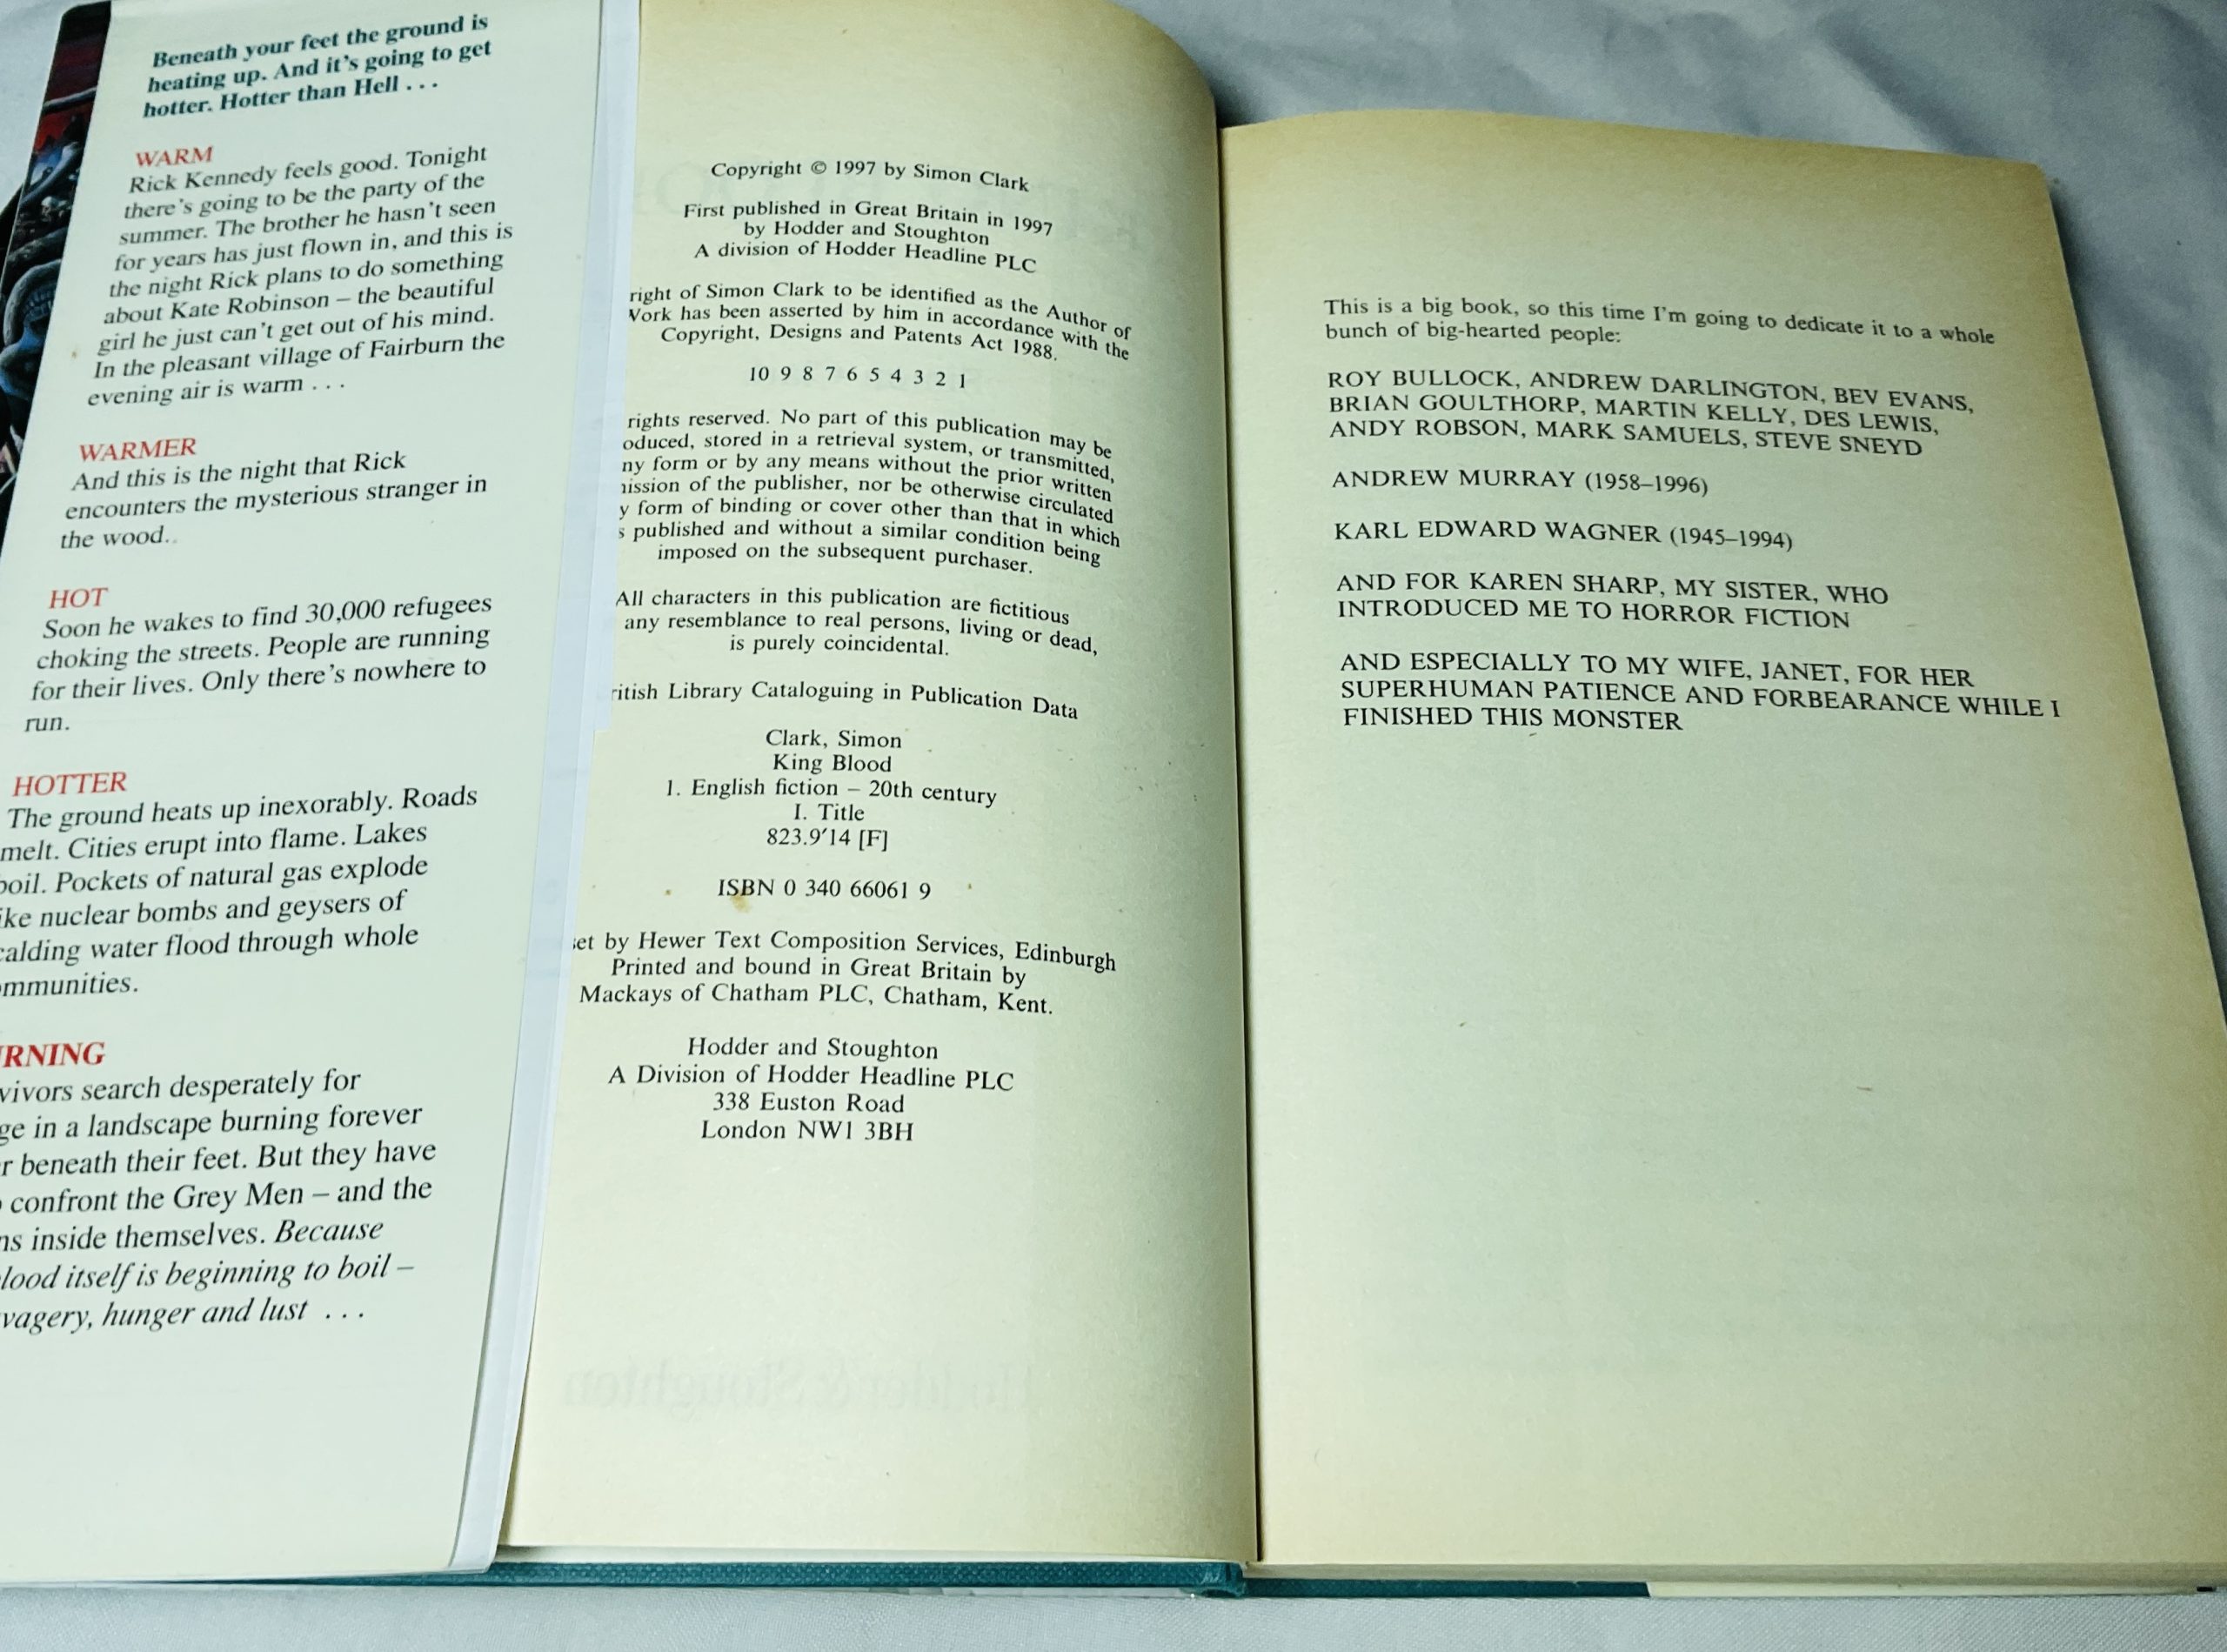 Beneath your feet the ground is
heating up. And it's going to get
hotter. Hotter than Hell . . .
WARM
Rick Kennedy feels good. Tonight
there's going to be the party of the
summer. The brother he hasn't seen
for years has just flown in, and this is
the night Rick plans to do something
about Kate Robinson – the beautiful
girl he just can't get out of his mind.
In the pleasant village of Fairburn the
evening air is warm . . .
WARMER
And this is the night that Rick
encounters the mysterious stranger in
the wood.
HOT
Soon he wakes to find 30,000 refugees
choking the streets. People are running
for their lives. Only there's nowhere to
run.
HOTTER
The ground heats up inexorably. Roads
melt. Cities erupt into flame. Lakes
boil. Pockets of natural gas explode
ike nuclear bombs and geysers of
calding water flood through whole
mmunities.
RNING
vivors search desperately for
ge in a landscape burning forever
r beneath their feet. But they have
confront the Grey Men – and the
ns inside themselves. Because
lood itself is beginning to boil –
vagery, hunger and lust . . .
Copyright © 1997 by Simon Clark
First published in Great Britain in 1997
by Hodder and Stoughton
A division of Hodder Headline PLC
right of Simon Clark to be identified as the Author of
Work has been asserted by him in accordance with the
Copyright, Designs and Patents Act 1988.
10 9 8 7 6 5 4 3 2 1
rights reserved. No part of this publication may be
oduced, stored in a retrieval system, or transmitted,
ny form or by any means without the prior written
nission of the publisher, nor be otherwise circulated
y form of binding or cover other than that in which
s published and without a similar condition being
imposed on the subsequent purchaser.
All characters in this publication are fictitious
any resemblance to real persons, living or dead,
is purely coincidental.
ritish Library Cataloguing in Publication Data
Clark, Simon
King Blood
1. English fiction – 20th century
I. Title
823.9'14 [F]
ISBN 0 340 66061 9
set by Hewer Text Composition Services, Edinburgh
Printed and bound in Great Britain by
Mackays of Chatham PLC, Chatham, Kent.
Hodder and Stoughton
A Division of Hodder Headline PLC
338 Euston Road
London NW1 3BH
This is a big book, so this time I'm going to dedicate it to a whole
bunch of big-hearted people:
ROY BULLOCK, ANDREW DARLINGTON, BEV EVANS,
BRIAN GOULTHORP, MARTIN KELLY, DES LEWIS,
ANDY ROBSON, MARK SAMUELS, STEVE SNEYD
ANDREW MURRAY (1958–1996)
KARL EDWARD WAGNER (1945–1994)
AND FOR KAREN SHARP, MY SISTER, WHO
INTRODUCED ME TO HORROR FICTION
AND ESPECIALLY TO MY WIFE, JANET, FOR HER
SUPERHUMAN PATIENCE AND FORBEARANCE WHILE I
FINISHED THIS MONSTER